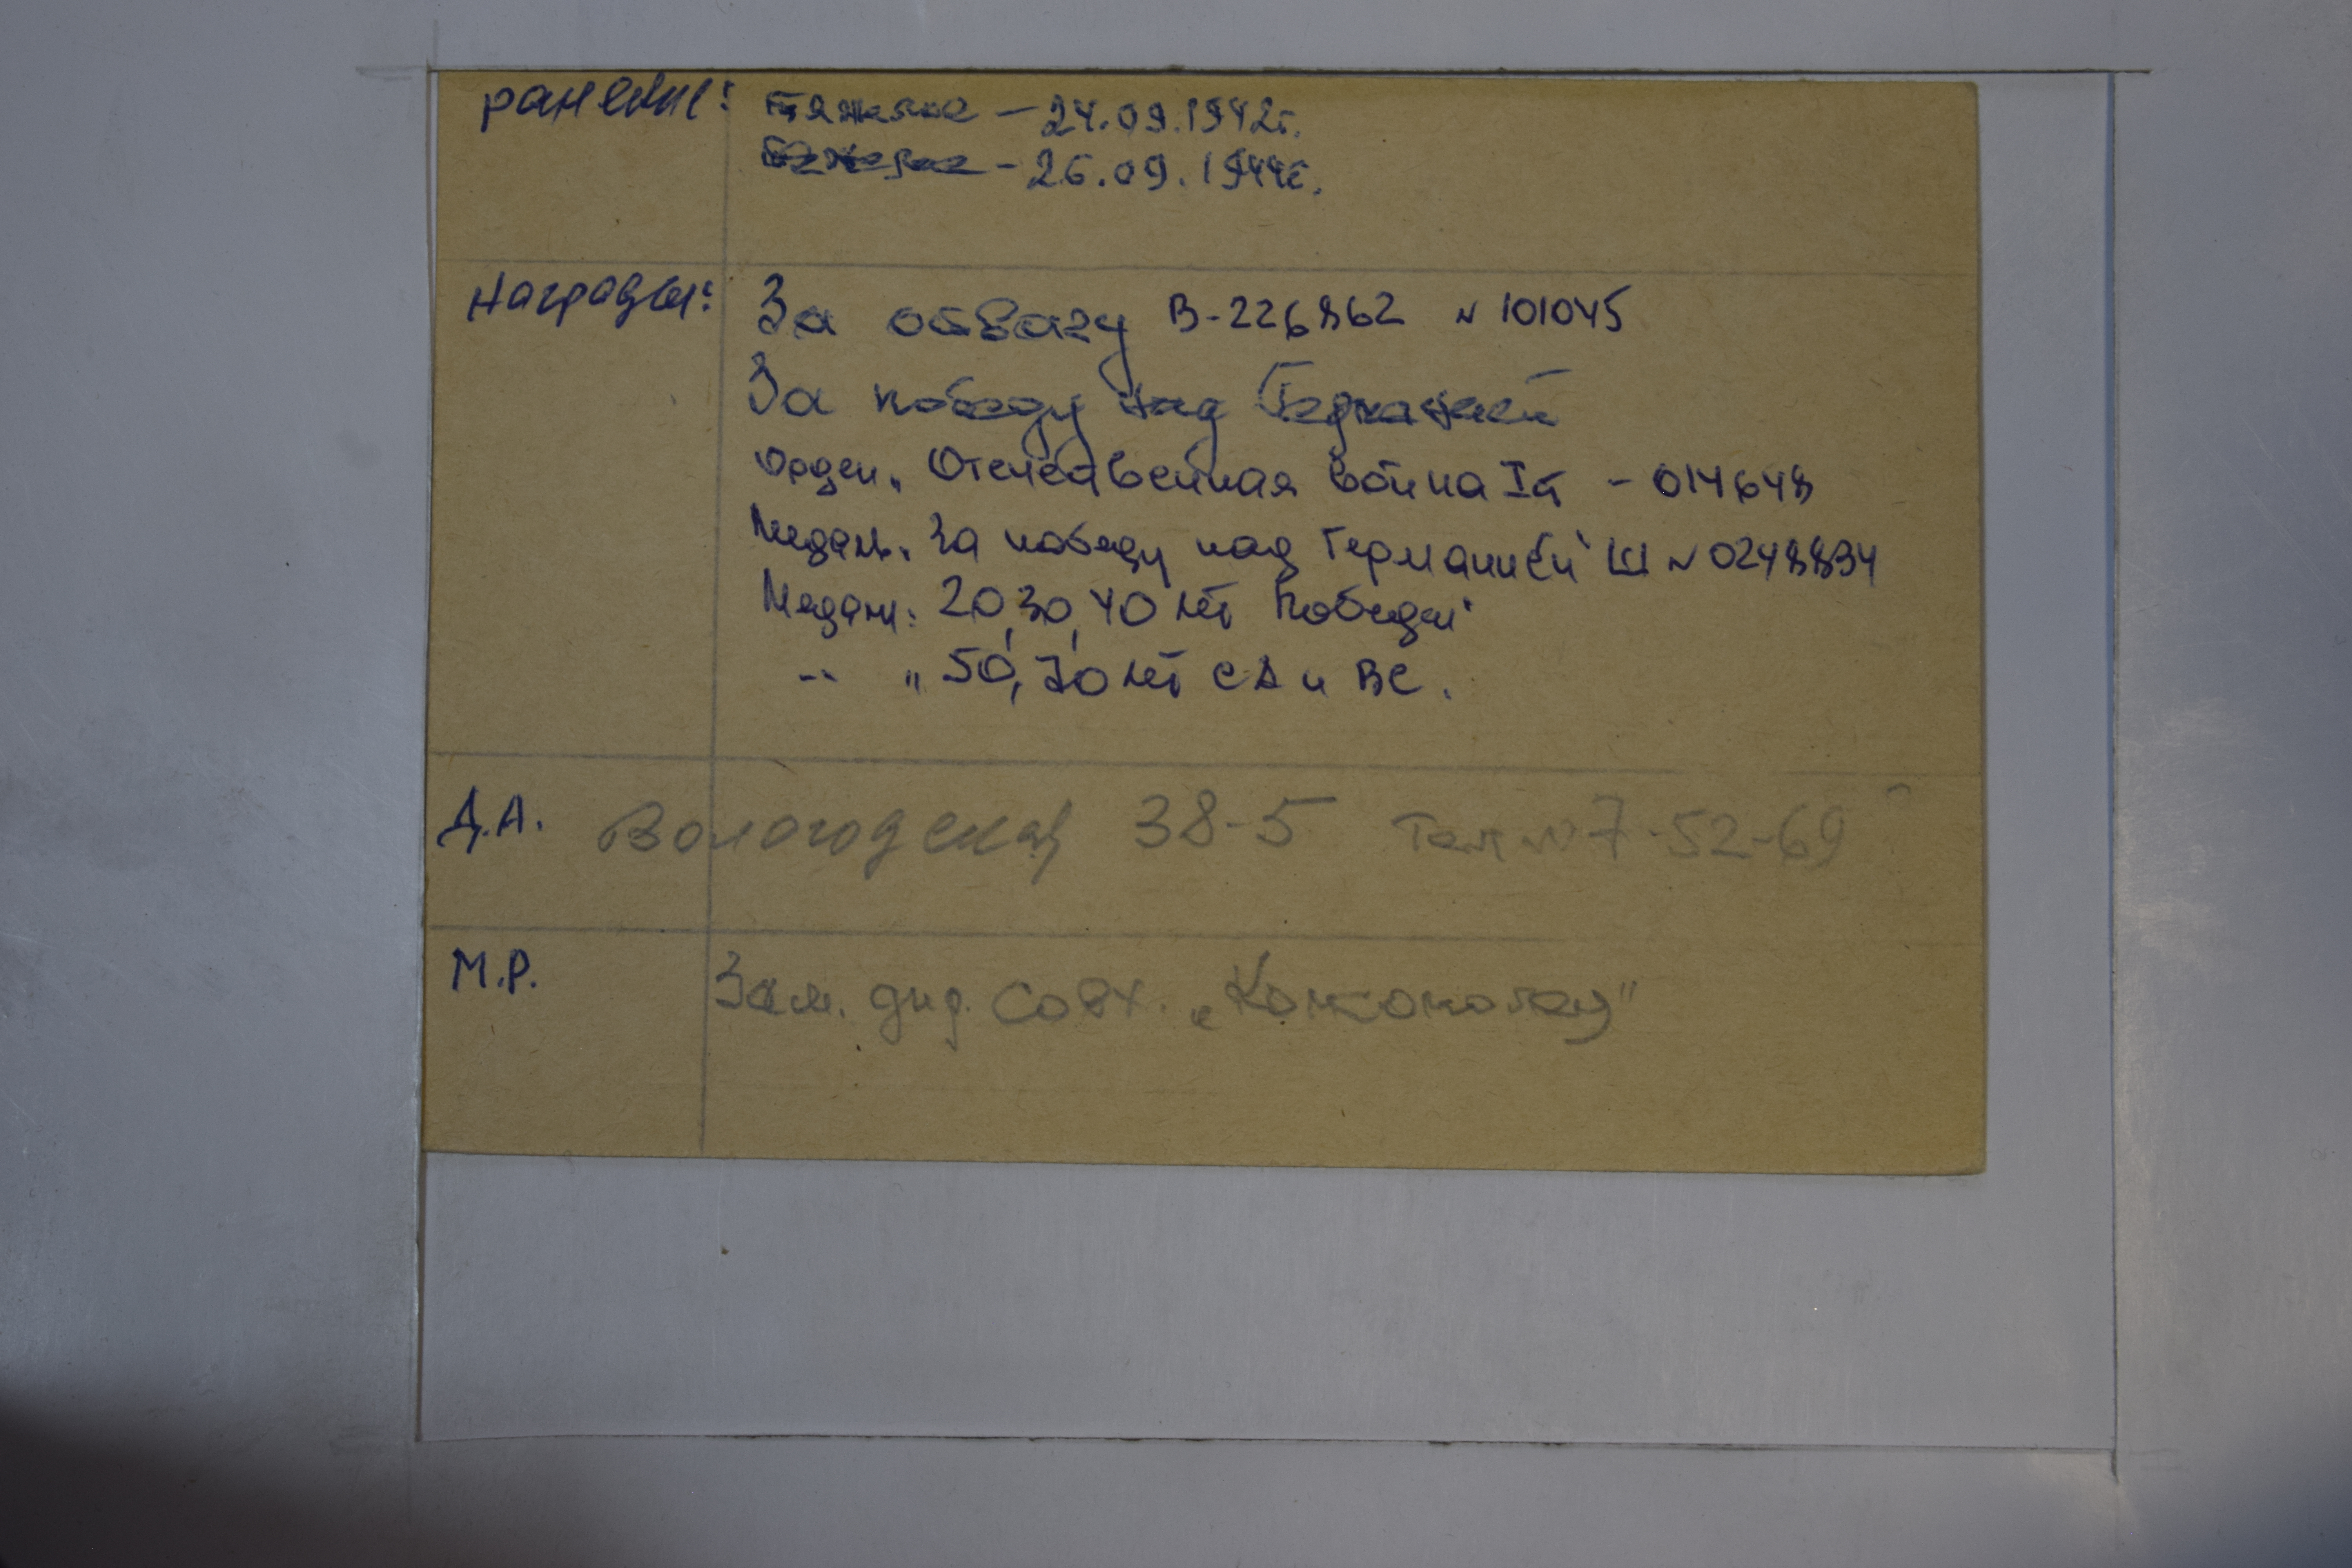 ранение: тяжелое - 24.09.1942г.
тяжелое - 26.09.1944г.
Награды: За отвагу В-226862 № 101045
За победу над Германией
Орден „Отечественная война I ст - 014648
Медаль „За победу над Германией" Ш № 0248894
Медали: 20, 30, 40 лет Победы"
-"- „ 50, 70 лет СА и ВС.
Д.А. Вологодская 38-5 Тел № 7-52-69
М.Р. Зам. дир. совх.